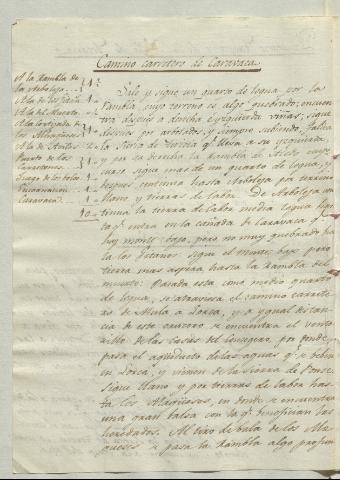 Camino carretero de Caravaca
A la Rambla de
la Arboleja 1½
A la de los Pasos 1
A la del Muerto 1
A la Cortijada de
los Alagüeses 1
A la de Aviles 2
Puerto de los
Carrascones 1
Singla
Caravaca 1
10
Sale y sigue un quarto de legua por la
Rambla cuyo terreno es algo quebrado; encuen
tra despues a derecha e izquierda viñas, sigue
despues por arbolados, y siempre subiendo, faldea
la Sierra de Tercia qe lleva a su izquierda,
y por su derecha la Rambla de cuyo
curso sigue mas de un quarto de legua, y
despues continua hasta Arboleja por terreno
llano y tierras de labor. De Arboleja con
tinua la tierra de labor media legua has
ta qe entra en la cañada de Caravaca qe
hay monte bajo, pero no muy quebrado has
ta los sigue el monte bajo pero
tierra mas aspera hasta la Rambla del
muerto. Pasada esta como medio quarto
de legua, se atraviesa el camino carrete
ro de Mula a Lorca, y a ygual distan
cia de este crucero se encuentra el vento
rillo de las casas del Consejero, por donde
pasa el aqueducto de las aguas qe se beben
en Lorca, y vienen de la Sierra de Ponce.
Sigue llano y por tierras de labor has
ta los Alagüeses, en donde se encuentra
una gran balsa con la qe benefician las
heredades. Al tiro de bala de los Ala
gueses se pasa la Rambla algo profun